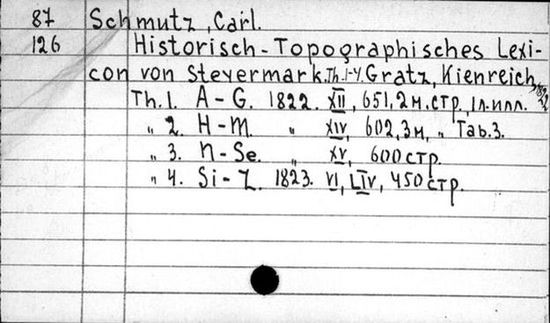 87 Schmutz, Carl.
126 Historisch-Topographisches Lexi-
con von Steyermark. Th. 1-4. Gratz, Kienreich,
Th. 1. A-G. 1822. XII, 651, 2 н. стр., 1 л. илл.
„ 2. H-M. „ XIV, 602, 3 н, „ Таб. 3.
„ 3. N-Se. „ XV, 600 стр.
„ 4. Si-Z. 1823. VI, LIV, 450 стр.